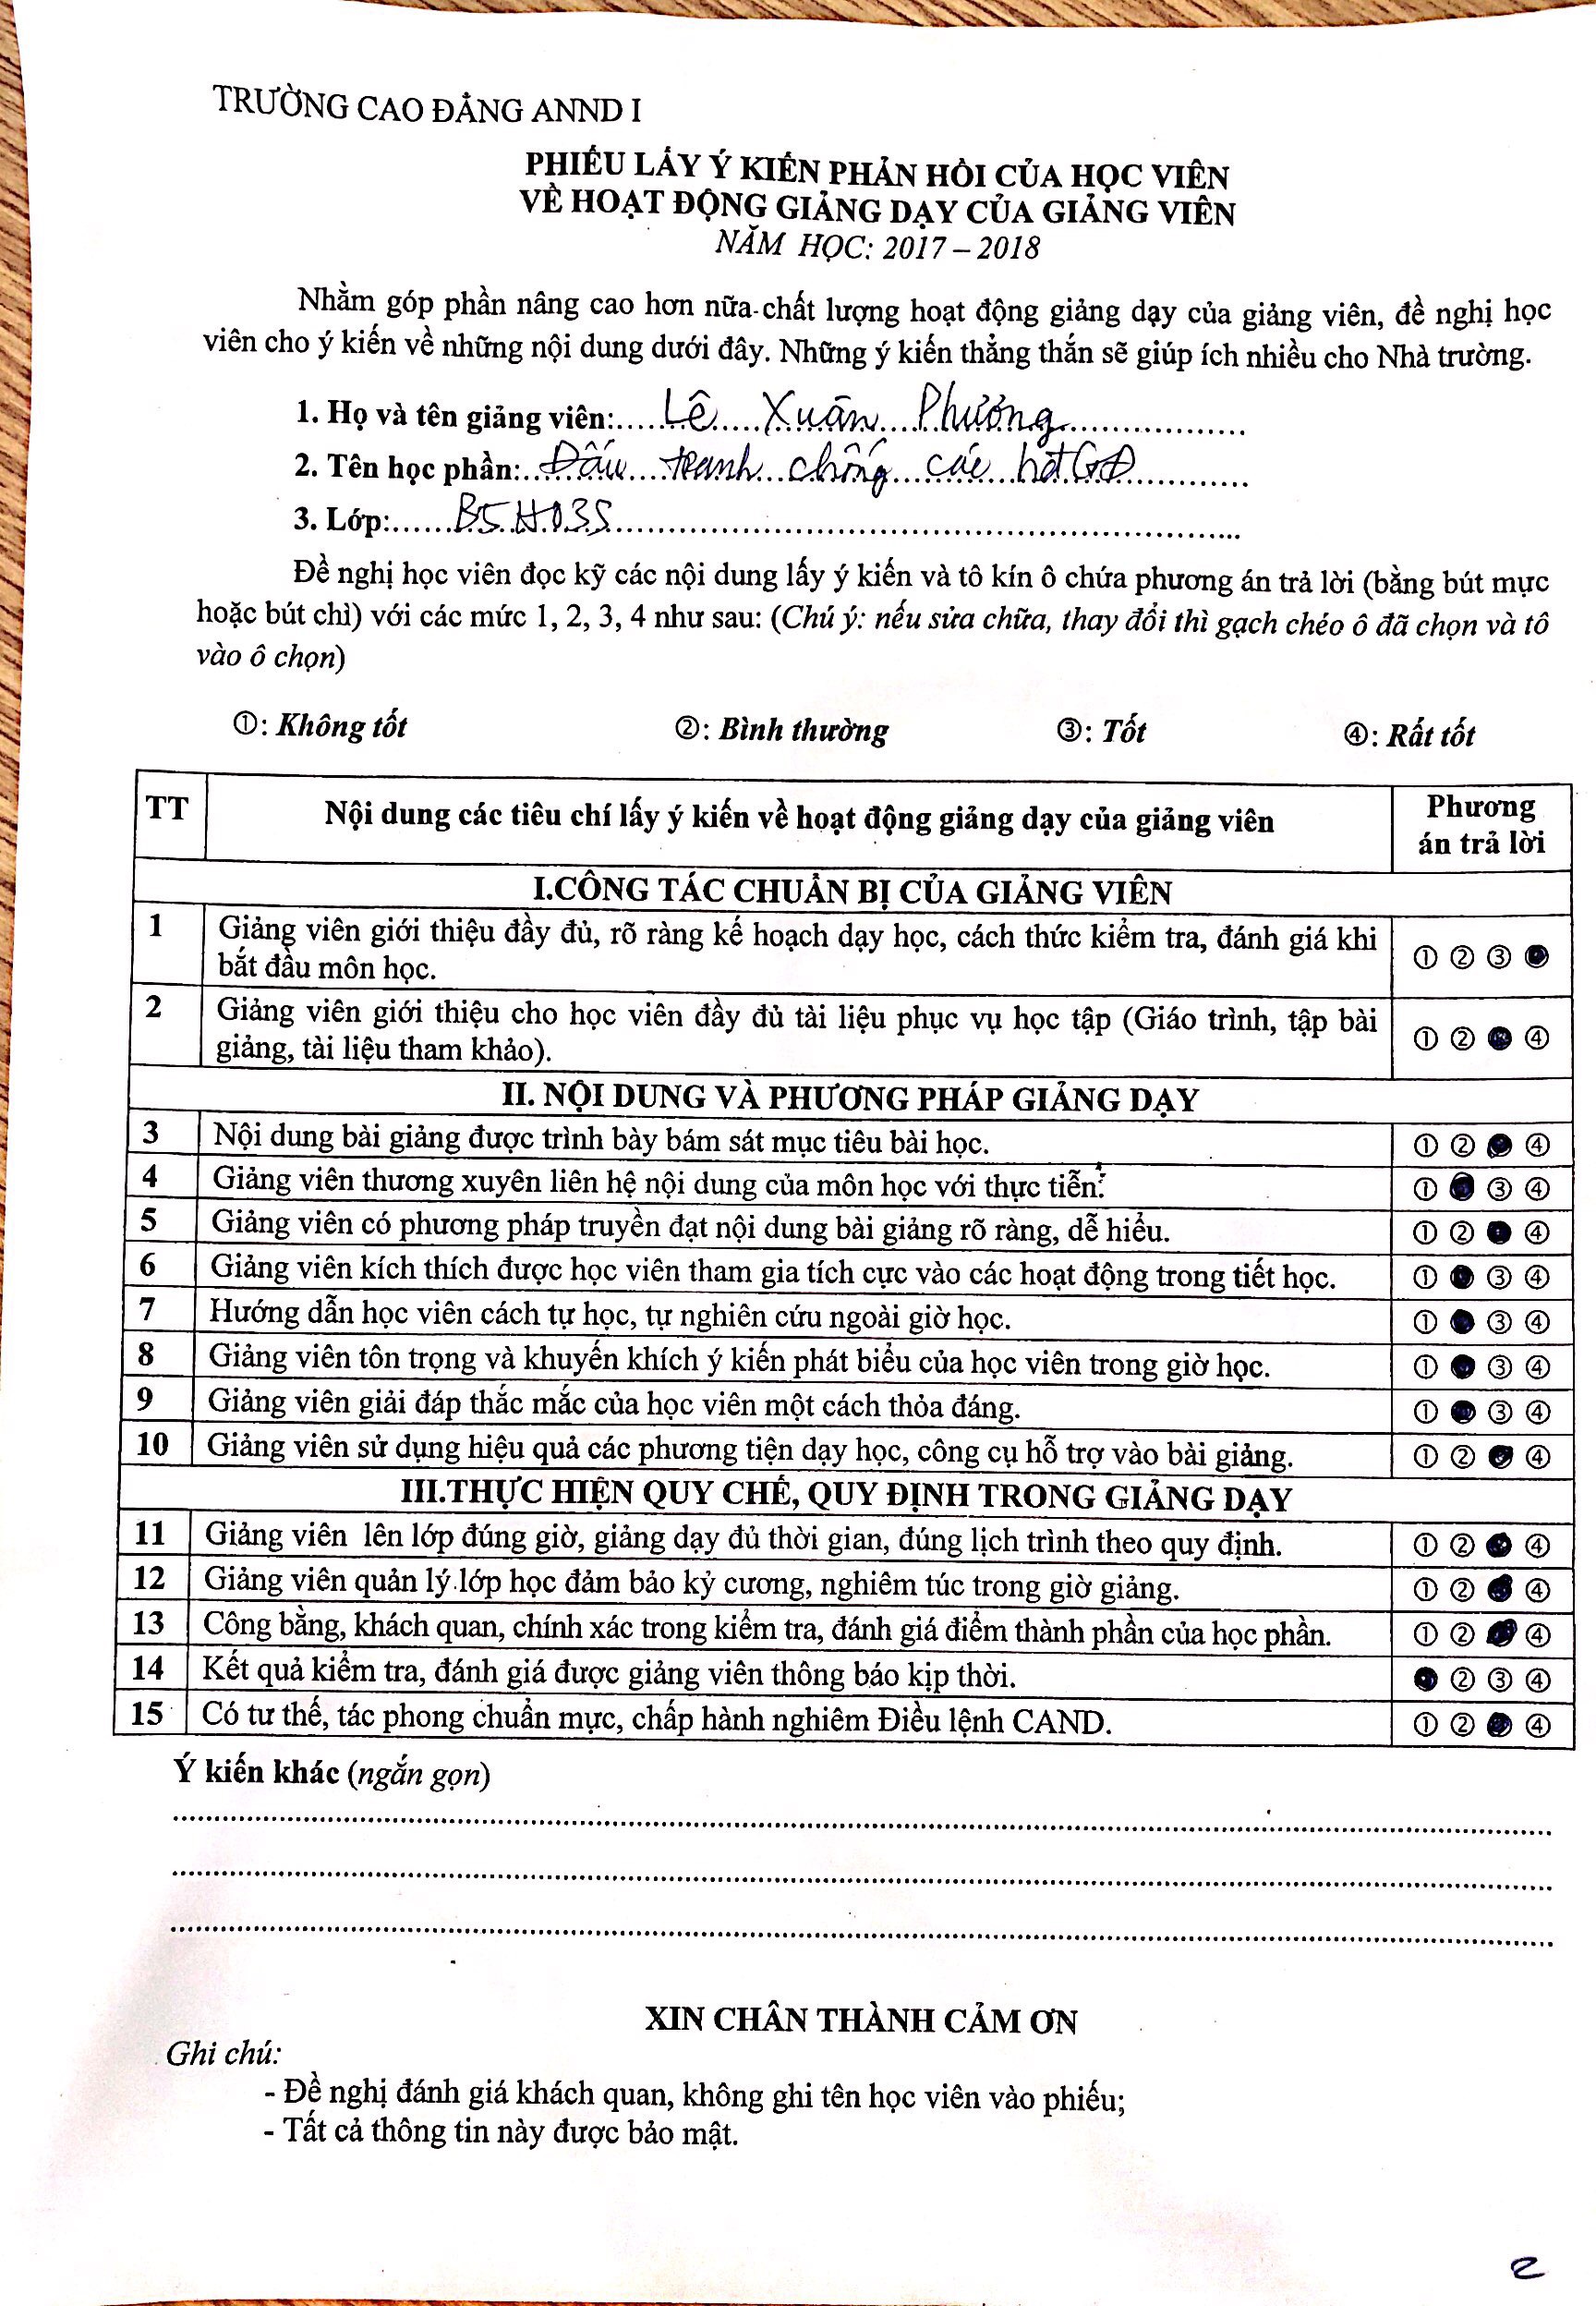 TRƯỜNG CAO ĐẲNG ANND I
PHIẾU LẤY Ý KIẾN PHẢN HỒI CỦA HỌC VIÊN
VỀ HOẠT ĐỘNG GIẢNG DẠY CỦA GIẢNG VIÊN
NĂM HỌC: 2017 – 2018
Nhằm góp phần nâng cao hơn nữa chất lượng hoạt động giảng dạy của giảng viên, đề nghị học
viên cho ý kiến về những nội dung dưới đây. Những ý kiến thẳng thắn sẽ giúp ích nhiều cho Nhà trường.
1. Họ và tên giảng viên:......Lê Xuân Phương..................
2. Tên học phần:..Đấu tranh chống các hđ GĐ.............
3. Lớp:......B5H03S..........................................................
Đề nghị học viên đọc kỹ các nội dung lấy ý kiến và tô kín ô chứa phương án trả lời (bằng bút mực
hoặc bút chì) với các mức 1, 2, 3, 4 như sau: (Chú ý: nếu sửa chữa, thay đổi thì gạch chéo ô đã chọn và tô
vào ô chọn)
①: Không tốt ②: Bình thường ③: Tốt ④: Rất tốt
TT Nội dung các tiêu chí lấy ý kiến về hoạt động giảng dạy của giảng viên Phương
án trả lời
I.CÔNG TÁC CHUẨN BỊ CỦA GIẢNG VIÊN
1 Giảng viên giới thiệu đầy đủ, rõ ràng kế hoạch dạy học, cách thức kiểm tra, đánh giá khi
bắt đầu môn học. ① ② ③ ●
2 Giảng viên giới thiệu cho học viên đầy đủ tài liệu phục vụ học tập (Giáo trình, tập bài
giảng, tài liệu tham khảo). ① ② ● ④
II. NỘI DUNG VÀ PHƯƠNG PHÁP GIẢNG DẠY
3 Nội dung bài giảng được trình bày bám sát mục tiêu bài học. ① ② ● ④
4 Giảng viên thương xuyên liên hệ nội dung của môn học với thực tiễn. ① ● ③ ④
5 Giảng viên có phương pháp truyền đạt nội dung bài giảng rõ ràng, dễ hiểu. ① ② ● ④
6 Giảng viên kích thích được học viên tham gia tích cực vào các hoạt động trong tiết học. ① ● ③ ④
7 Hướng dẫn học viên cách tự học, tự nghiên cứu ngoài giờ học. ① ● ③ ④
8 Giảng viên tôn trọng và khuyến khích ý kiến phát biểu của học viên trong giờ học. ① ● ③ ④
9 Giảng viên giải đáp thắc mắc của học viên một cách thỏa đáng. ① ● ③ ④
10 Giảng viên sử dụng hiệu quả các phương tiện dạy học, công cụ hỗ trợ vào bài giảng. ① ② ● ④
III.THỰC HIỆN QUY CHẾ, QUY ĐỊNH TRONG GIẢNG DẠY
11 Giảng viên lên lớp đúng giờ, giảng dạy đủ thời gian, đúng lịch trình theo quy định. ① ② ● ④
12 Giảng viên quản lý lớp học đảm bảo kỷ cương, nghiêm túc trong giờ giảng. ① ② ● ④
13 Công bằng, khách quan, chính xác trong kiểm tra, đánh giá điểm thành phần của học phần. ① ② ● ④
14 Kết quả kiểm tra, đánh giá được giảng viên thông báo kịp thời. ● ② ③ ④
15 Có tư thế, tác phong chuẩn mực, chấp hành nghiêm Điều lệnh CAND. ① ② ● ④
Ý kiến khác (ngắn gọn)
XIN CHÂN THÀNH CẢM ƠN
Ghi chú:
- Đề nghị đánh giá khách quan, không ghi tên học viên vào phiếu;
- Tất cả thông tin này được bảo mật.
2